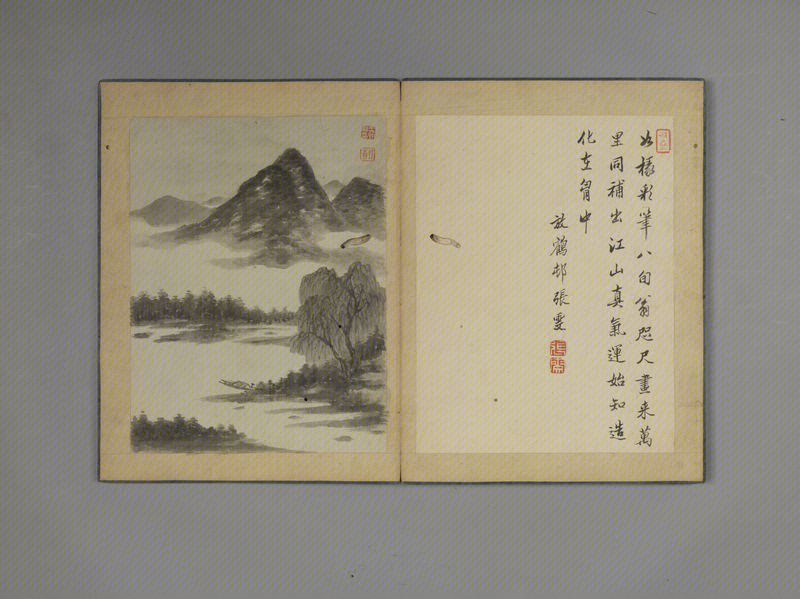 如椽彩筆八旬翁咫尺畫來萬
里同補出江山真氣運始知造
化在胷中
放鶴邨張雯